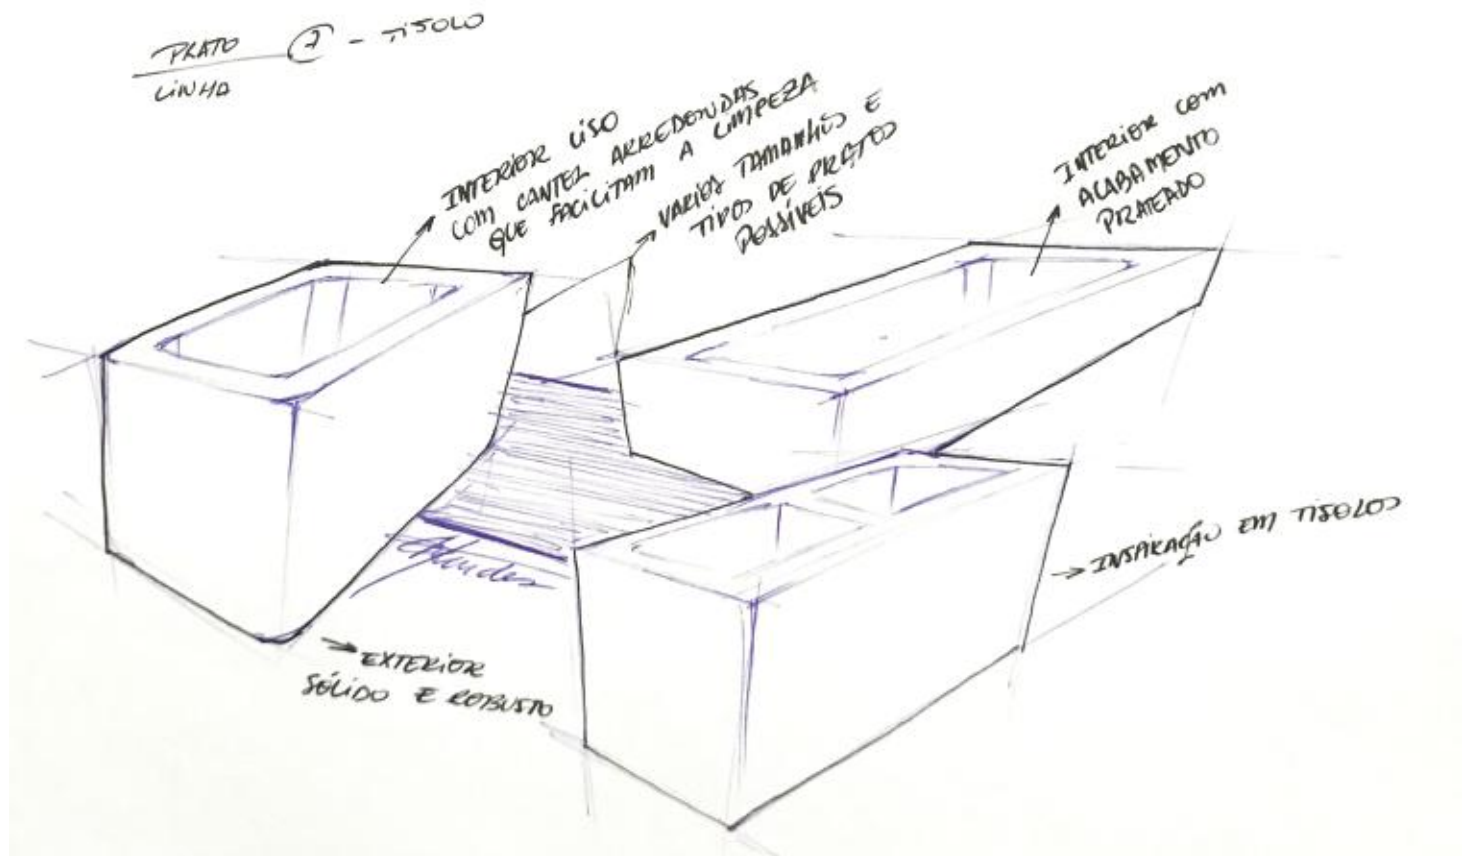 PRATO - TIJOLO
LINHA
INTERIOR LISO
COM CANTOS ARREDONDAS
QUE FACILITAM A LIMPEZA
VARIOS TAMANHOS E
TIPOS DE PRATOS
POSSÍVEIS
INTERIOR COM
ACABAMENTO
PRATEADO
INSPIRAÇÃO EM TIJOLOS
EXTERIOR
SÓLIDO E ROBUSTO